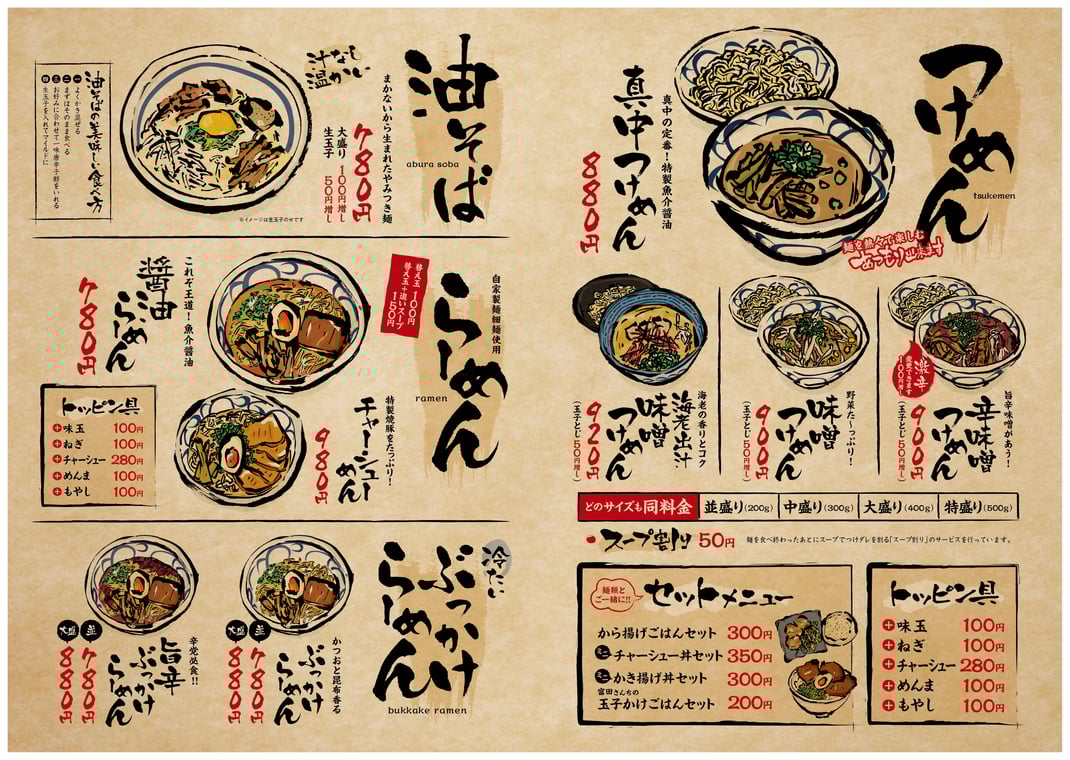 つけめん
tsukemen
真中の定番!特製魚介醤油
真中つけめん
880円
麺を熱々で楽しむ
あつもり出来ます
旨辛味噌があう!
辛味噌
つけめん
900円
(玉子とじ50円増し)
激辛
変更できます
100円増し
野菜た〜っぷり!
味噌
つけめん
900円
(玉子とじ50円増し)
海老の香りとコク
海老出汁
味噌
つけめん
920円
(玉子とじ50円増し)
どのサイズも同料金
並盛り(200g)
中盛り(300g)
大盛り(400g)
特盛り(500g)
スープ割り 50円
麺を食べ終わったあとにスープでつけダレを割る「スープ割り」のサービスを行っています。
麺類と
ご一緒に!!
セットメニュー
から揚げごはんセット 300円
ミニチャーシュー丼セット 350円
ミニかき揚げ丼セット 300円
富田さんちの
玉子かけごはんセット 200円
トッピン具
+味玉 100円
+ねぎ 100円
+チャーシュー 280円
+めんま 100円
+もやし 100円
油そば
abura soba
汁なし
温かい
まかないから生まれたやみつき麺
780円
大盛り 100円増し
生玉子 50円増し
※イメージは生玉子のせです
油そばの美味しい食べ方
一 よくかき混ぜる
二 まずはそのまま食べる
三 お好みに合わせて一味唐辛子酢をいれる
四 生玉子を入れてマイルドに
自家製麺細麺使用
らーめん
ramen
替え玉 100円
替え玉+追いスープ
150円
これぞ王道!魚介醤油
醤油
らーめん
780円
特製焼豚をたっぷり!
チャーシュー
めん
980円
トッピン具
+味玉 100円
+ねぎ 100円
+チャーシュー 280円
+めんま 100円
+もやし 100円
冷たい
ぶっかけ
らーめん
bukkake ramen
かつおと昆布香る
ぶっかけ
らーめん
並 780円
大盛 880円
辛党必食!!
旨辛
ぶっかけ
らーめん
並 780円
大盛 880円